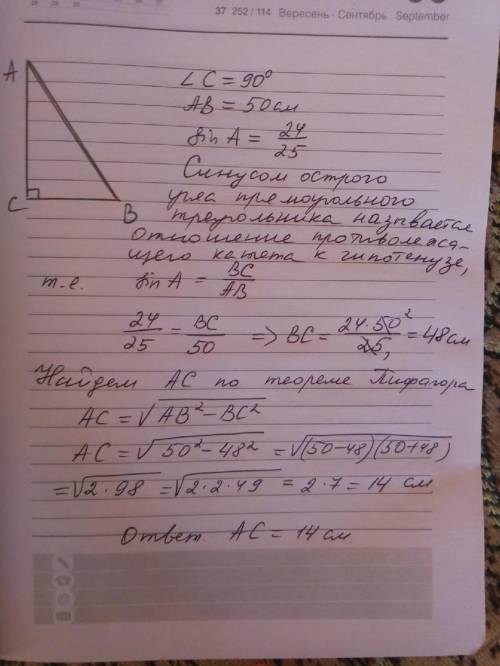 37 252 / 114 Вересень · Сентябрь · September
A
C
B
∠C = 90°
AB = 50 см
sin A = 24/25
Синусом острого
угла прямоугольного
треугольника называется
отношение противолежа-
щего катета к гипотенузе,
т.е. sin A = BC/AB
24/25 = BC/50 => BC = 24·50²/25₁ = 48 см
Найдем AC по теореме Пифагора
AC = √AB² − BC²
AC = √50² − 48² = √(50−48)(50+48)
= √2·98 = √2·2·49 = 2·7 = 14 см
Ответ. AC = 14 см.